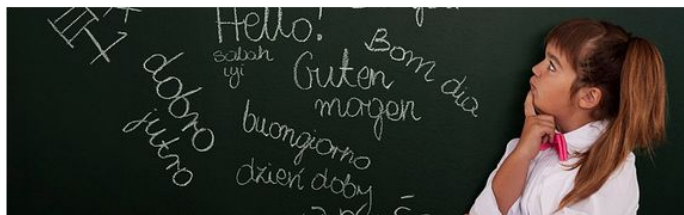 Hello!
sabah
iyi
Bom dia
Guten
morgen
dobro
jutro
buongiorno
dzień doby